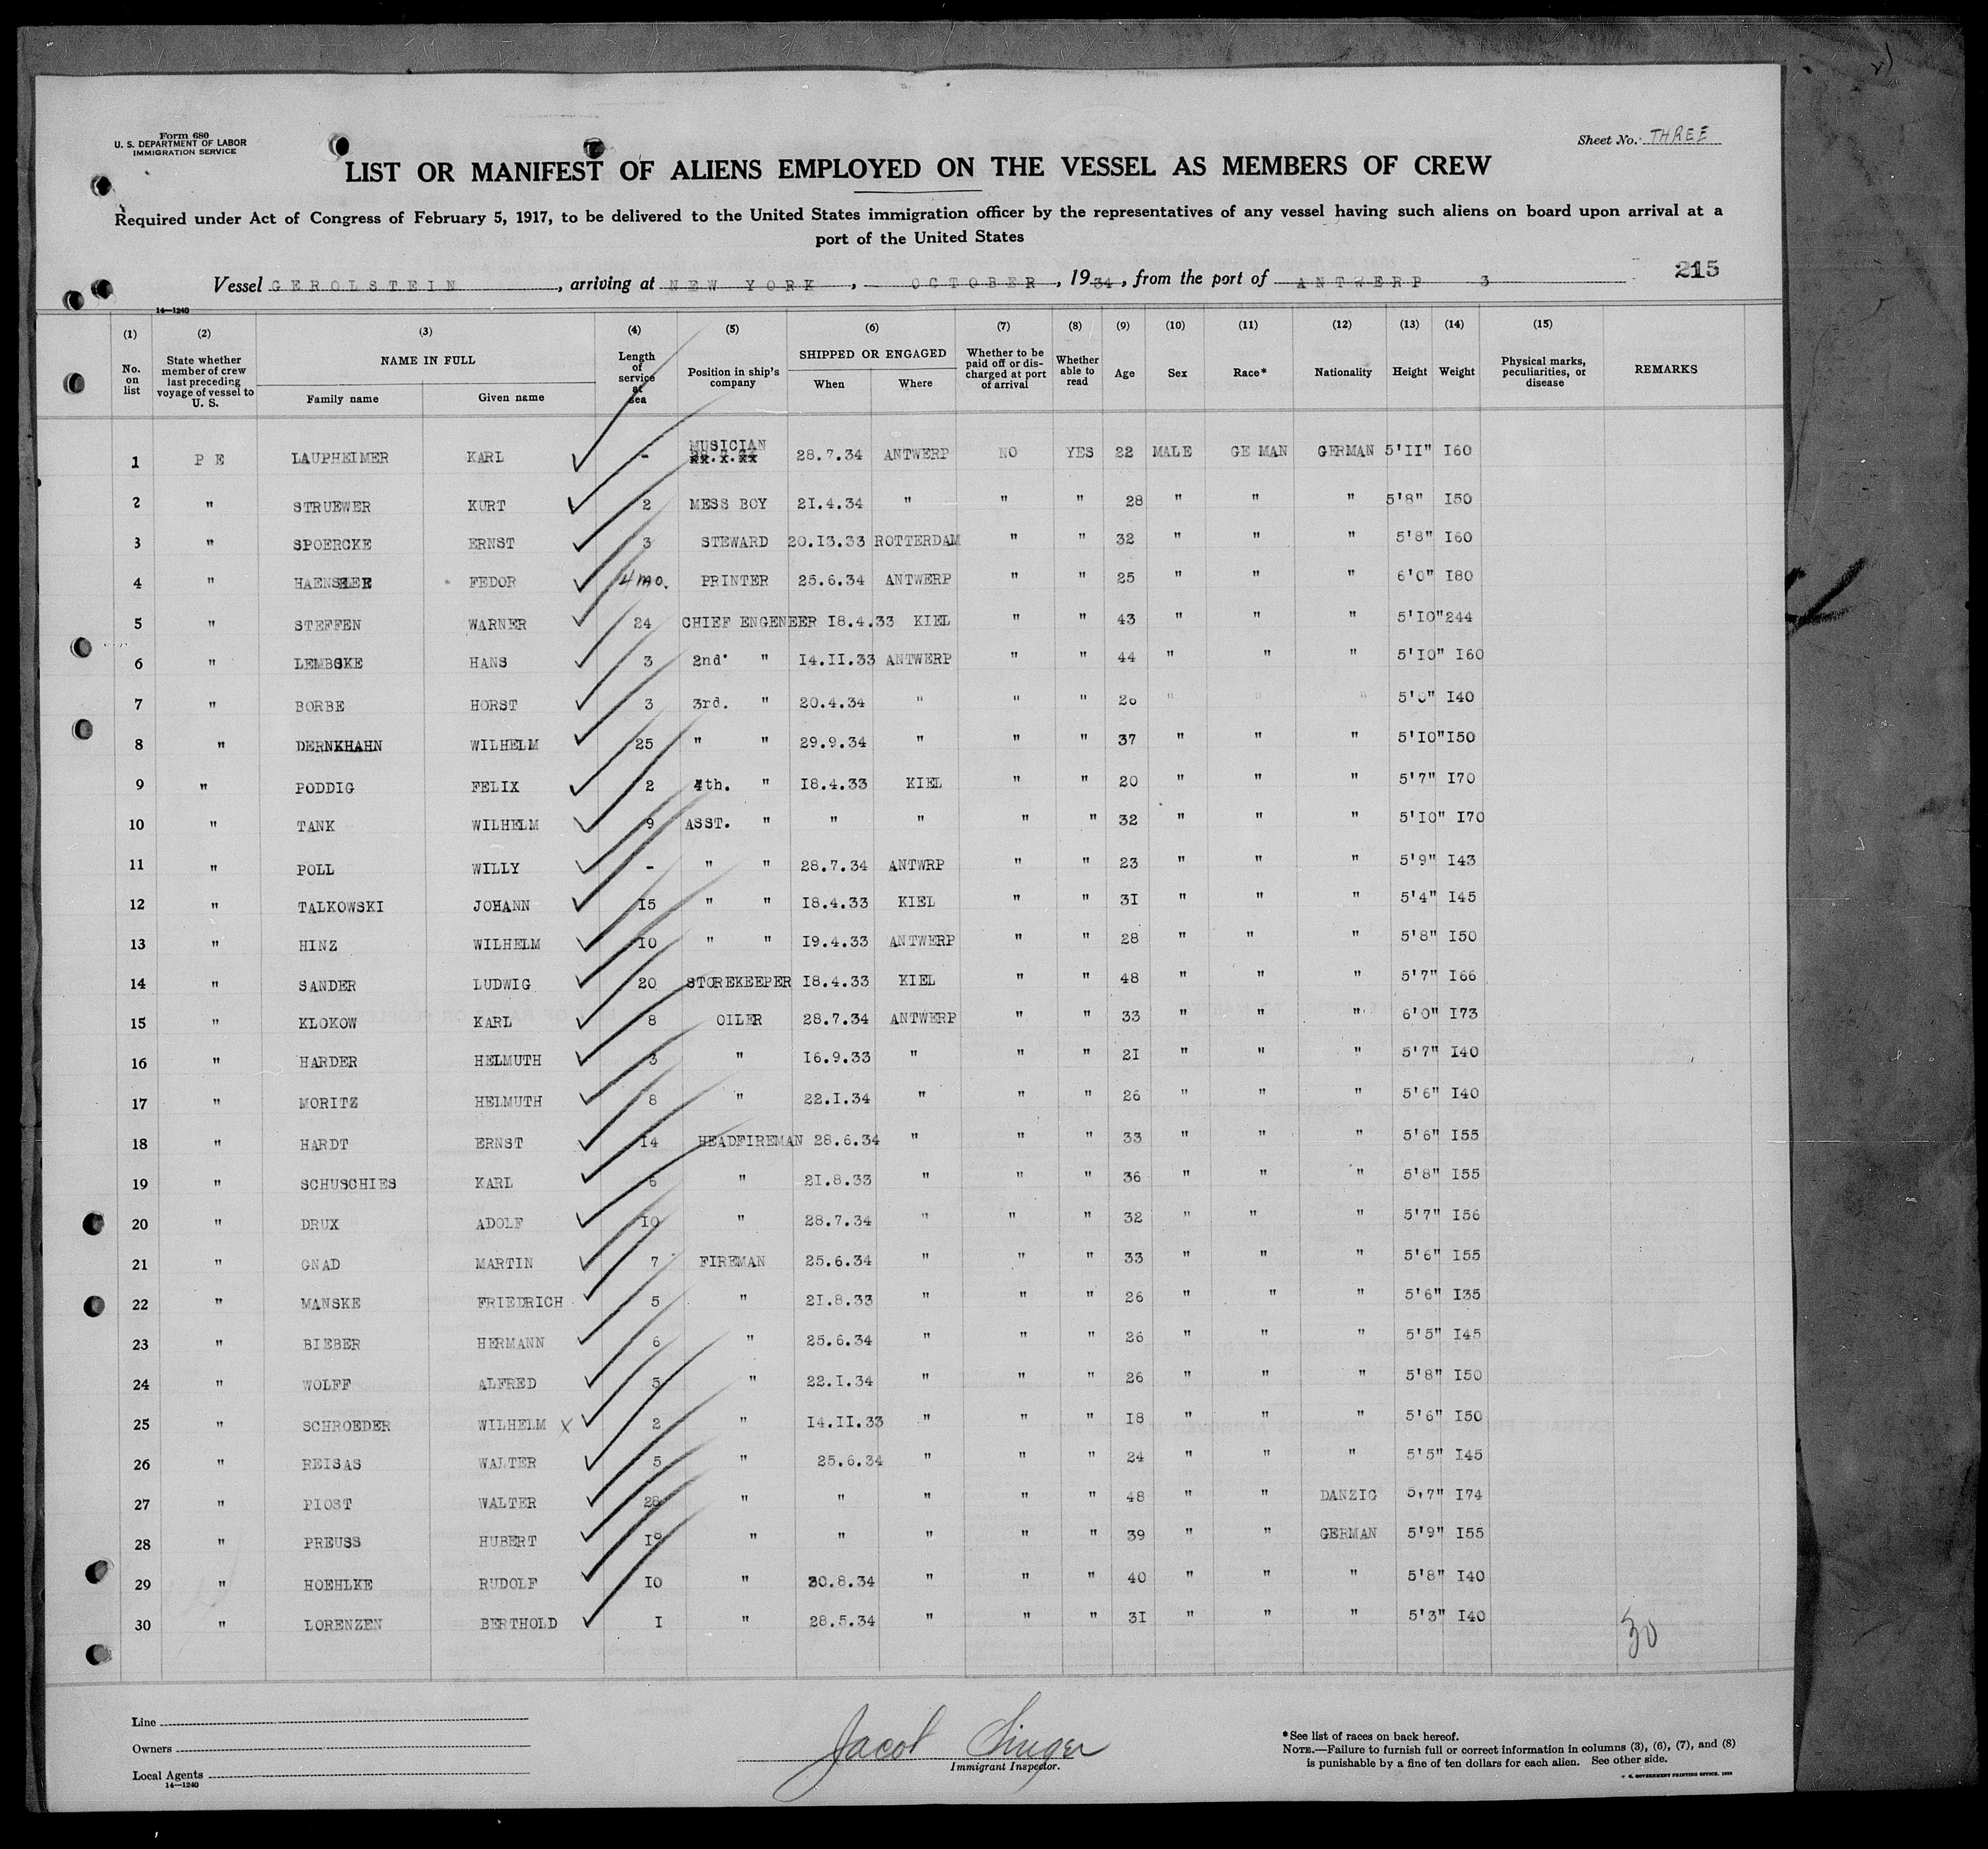 Form 680
U. S. DEPARTMENT OF LABOR
IMMIGRATION SERVICE
Sheet No. THREE
LIST OR MANIFEST OF ALIENS EMPLOYED ON THE VESSEL AS MEMBERS OF CREW
Required under Act of Congress of February 5, 1917, to be delivered to the United States immigration officer by the representatives of any vessel having such aliens on board upon arrival at a
port of the United States
Vessel GEROLSTEIN, arriving at NEW YORK, OCTOBER, 1934, from the port of ANTWERP 3 215
14—1240
(1) (2) (3) (4) (5) (6) (7) (8) (9) (10) (11) (12) (13) (14) (15)
No. on list State whether member of crew last preceding voyage of vessel to U. S. NAME IN FULL Family name Given name Length of service at sea Position in ship's company SHIPPED OR ENGAGED When Where Whether to be paid off or discharged at port of arrival Whether able to read Age Sex Race* Nationality Height Weight Physical marks, peculiarities, or disease REMARKS
1 P E LAUPHEIMER KARL - MUSICIAN 28.7.34 ANTWERP NO YES 22 MALE GE MAN GERMAN 5'II" I60
2 " STRUEWER KURT 2 MESS BOY 2I.4.34 " " " 28 " " " 5'8" I50
3 " SPOERCKE ERNST 3 STEWARD 20.I3.33 ROTTERDAM " " 32 " " " 5'8" I60
4 " FEDOR 4 mo. PRINTER 25.6.34 ANTWERP " " 25 " " " 6'0" I80
5 " STEFFEN WARNER 24 CHIEF ENGENEER I8.4.33 KIEL " " 43 " " " 5'IO" 244
6 " HANS 3 2nd " I4.II.33 ANTWERP " " 44 " " " 5'IO" I60
7 " BORBE HORST 3 3rd. " 20.4.34 " " " " " " I40
8 " DERNKHAHN WILHELM 25 " " 29.9.34 " " " 37 " " " 5'IO" I50
9 " PODDIG FELIX 2 4th. " I8.4.33 KIEL " " 20 " " " 5'7" I70
10 " TANK WILHELM 9 ASST. " " " " " 32 " " " 5'IO" I70
11 " POLL WILLY - " " 28.7.34 ANTWRP " " 23 " " " 5'9" I43
12 " TALKOWSKI JOHANN I5 " " I8.4.33 KIEL " " 3I " " " 5'4" I45
13 " HINZ WILHELM IO " " I9.4.33 ANTWERP " " 28 " " " 5'8" I50
14 " SANDER LUDWIG 20 STOREKEEPER I8.4.33 KIEL " " 48 " " " 5'7" I66
15 " KLOKOW KARL 8 OILER 28.7.34 ANTWERP " " 33 " " " 6'0" I73
16 " HARDER HELMUTH 3 " I6.9.33 " " " 2I " " " 5'7" I40
17 " MORITZ HELMUTH 8 " 22.I.34 " " " 26 " " " 5'6" I40
18 " HARDT ERNST I4 HEADFIREMAN 28.6.34 " " " 33 " " " 5'6" I55
19 " SCHUSCHIES KARL 6 " 2I.8.33 " " " 36 " " " 5'8" I55
20 " DRUX ADOLF IO " 28.7.34 " " " 32 " " " 5'7" I56
21 " GNAD MARTIN 7 FIREMAN 25.6.34 " " " 33 " " " 5'6" I55
22 " MANSKE FRIEDRICH 5 " 2I.8.33 " " " 26 " " " 5'6" I35
23 " BIEBER HERMANN 6 " 25.6.34 " " " 26 " " " 5'5" I45
24 " WOLFF ALFRED 5 " 22.I.34 " " " 26 " " " 5'8" I50
25 " SCHROEDER WILHELM X 2 " I4.II.33 " " " I8 " " " 5'6" I50
26 " REISAS WALTER 5 " 25.6.34 " " " 24 " " " 5'5" I45
27 " PIOST WALTER 28 " " " " " 48 " " DANZIG 5,7" I74
28 " PREUSS HUBERT " " " " " 39 " " GERMAN 5'9" I55
29 " HOEHLKE RUDOLF IO " 30.8.34 " " " 40 " " " 5'8" I40
30 " LORENZEN BERTHOLD I " 28.5.34 " " " 3I " " " 5'3" I40
30
Line
Owners
Local Agents
14—1240
Jacob Singer
Immigrant Inspector.
*See list of races on back hereof.
NOTE.—Failure to furnish full or correct information in columns (3), (6), (7), and (8)
is punishable by a fine of ten dollars for each alien. See other side.
U. S. GOVERNMENT PRINTING OFFICE.